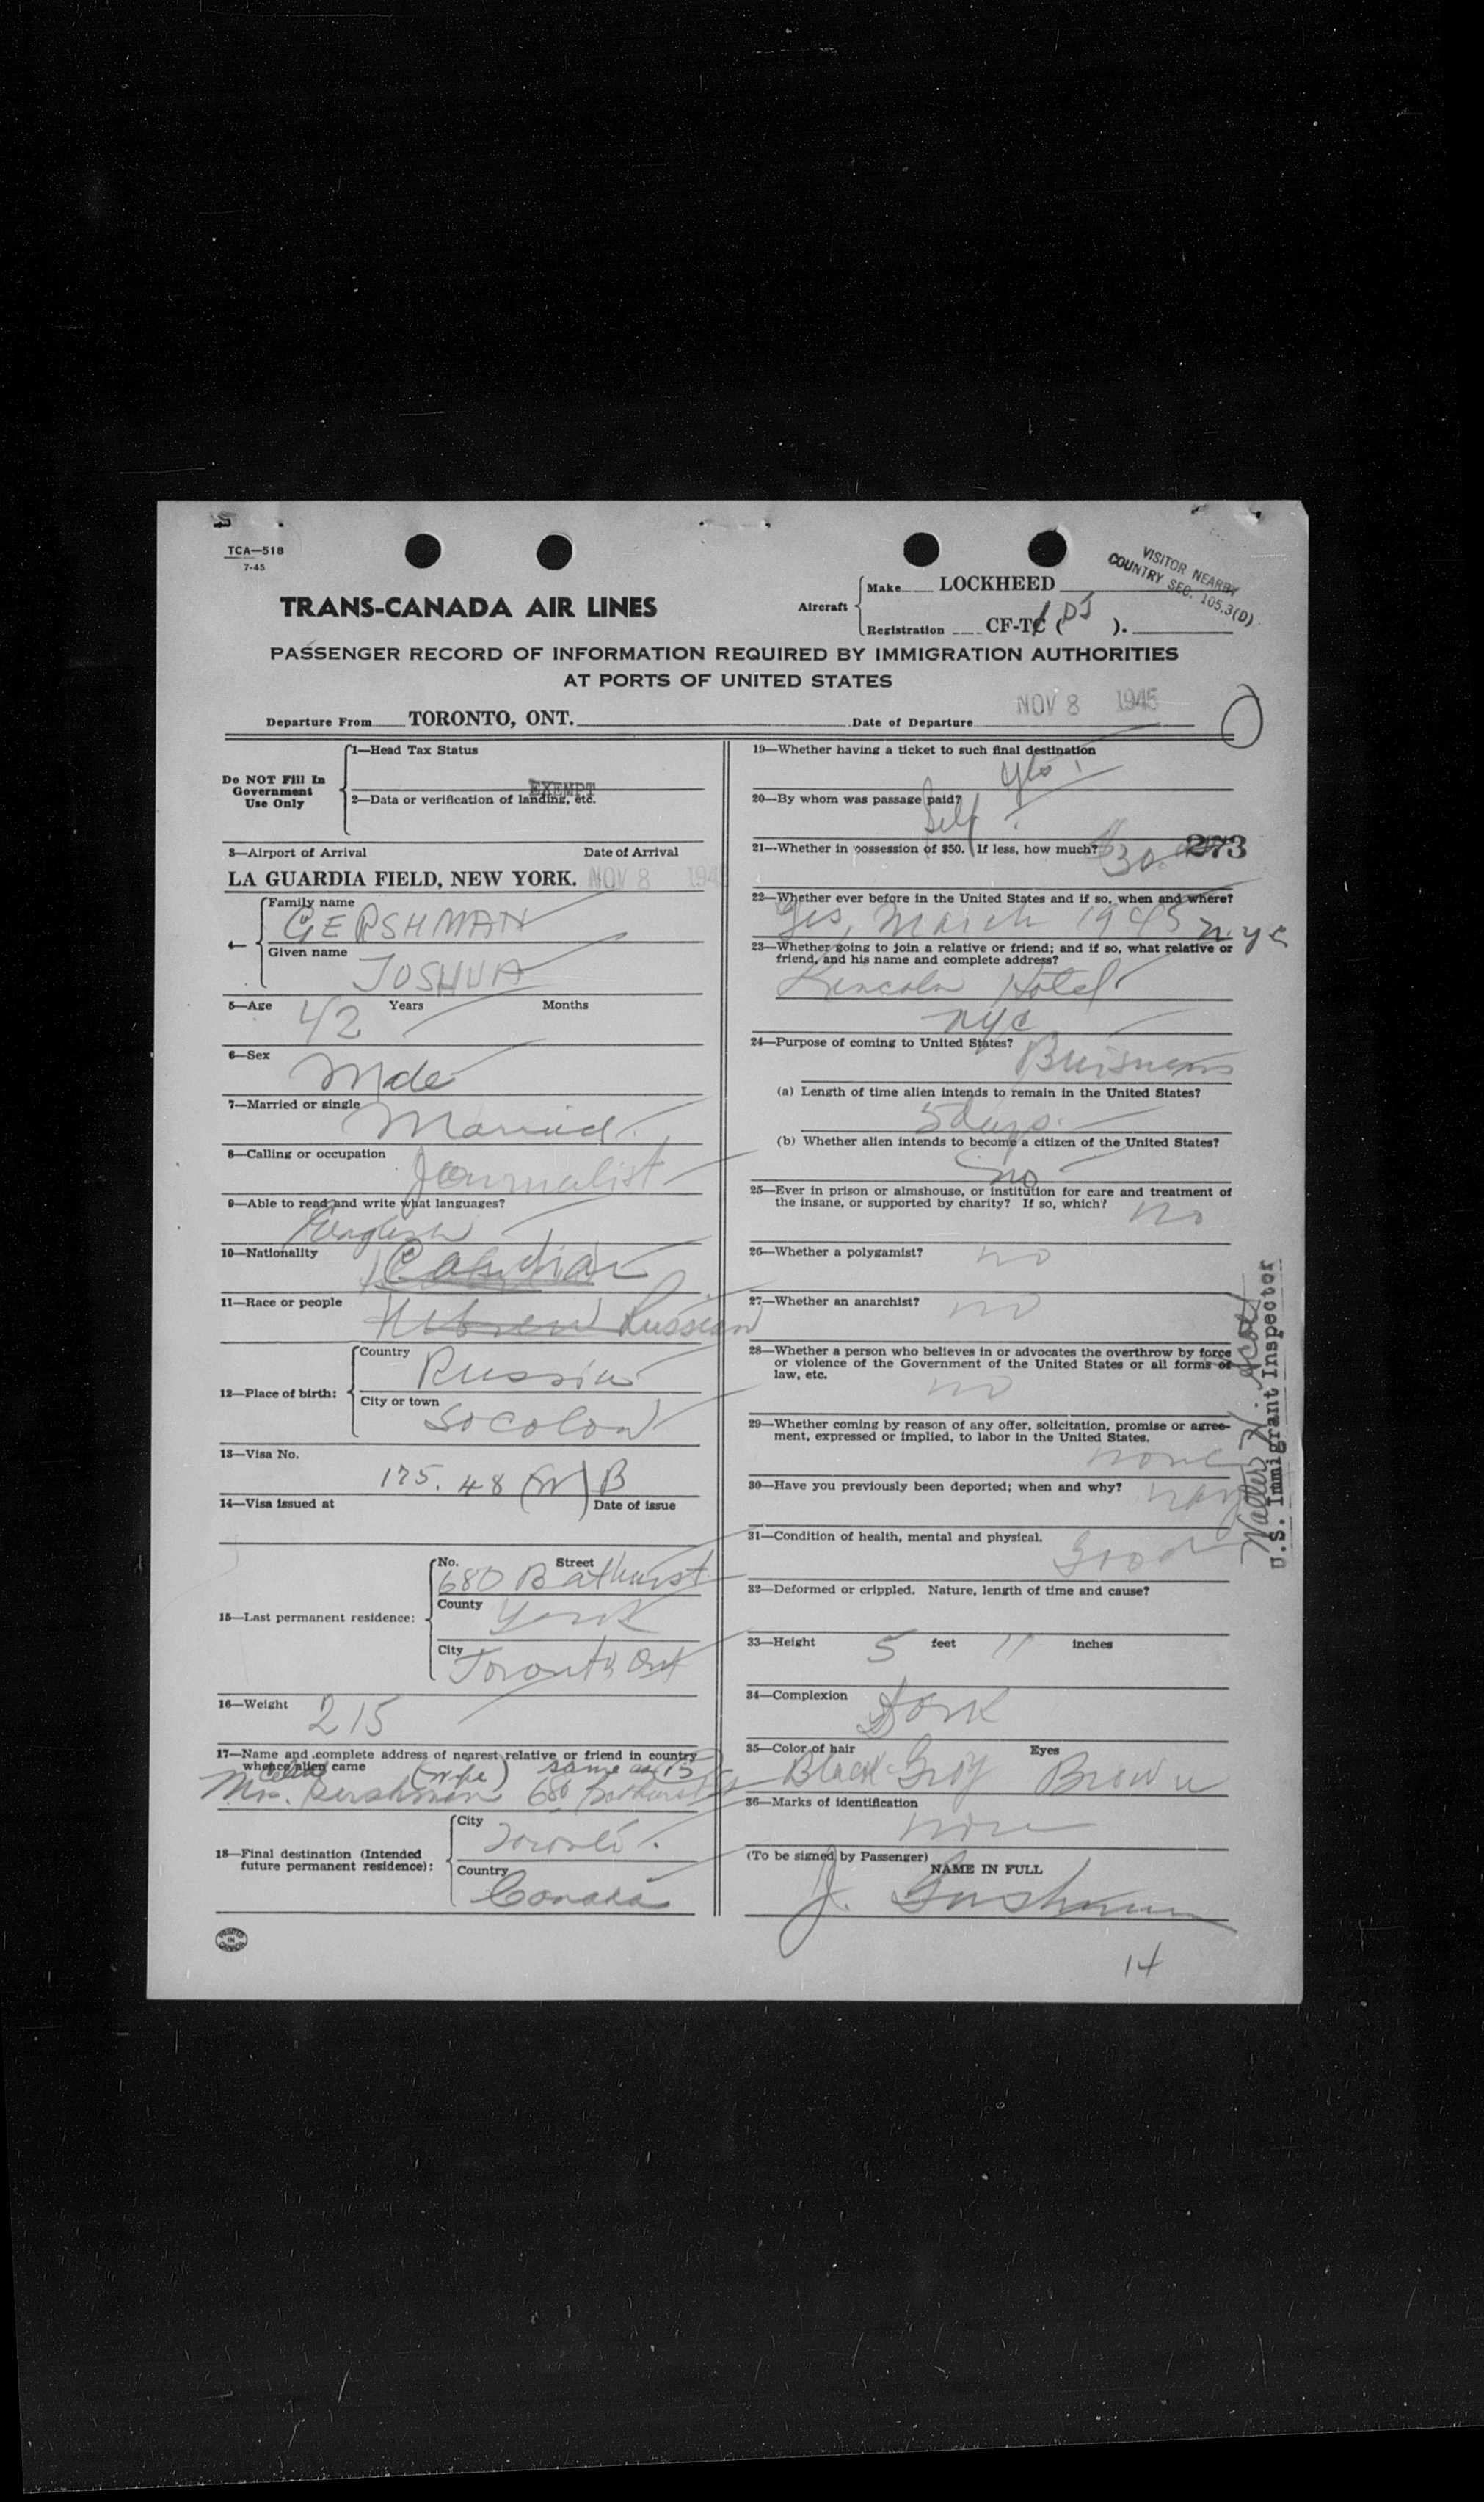 TCA—518
7-45
TRANS-CANADA AIR LINES
Aircraft
Make LOCKHEED
Registration CF-TC ( DJ ).
VISITOR NEARBY
COUNTRY SEC. 105.3(D)
PASSENGER RECORD OF INFORMATION REQUIRED BY IMMIGRATION AUTHORITIES
AT PORTS OF UNITED STATES
Departure From TORONTO, ONT. Date of Departure NOV 8 1945
Do NOT Fill In
Government
Use Only
1—Head Tax Status
EXEMPT
2—Data or verification of landing, etc.
3—Airport of Arrival Date of Arrival
LA GUARDIA FIELD, NEW YORK. NOV 8 194
4—
Family name
GERSHMAN
Given name
JOSHUA
5—Age 42 Years Months
6—Sex
Male
7—Married or single
Married
8—Calling or occupation
Journalist
9—Able to read and write what languages?
English
10—Nationality
Canadian
11—Race or people
Hebrew Russian
12—Place of birth:
Country
Russia
City or town
Socolow
13—Visa No.
175.48 (W) B
14—Visa issued at Date of issue
15—Last permanent residence:
No. Street
680 Bathurst
County
York
City
Toronto Ont
16—Weight 215
17—Name and complete address of nearest relative or friend in country
whence alien came
(wife) same as 15
Mrs. Gershman 680 Bathurst
18—Final destination (Intended
future permanent residence):
City
Toronto.
Country
Canada
PRINTED
IN
CANADA
19—Whether having a ticket to such final destination
yes
20—By whom was passage paid?
Self
21—Whether in possession of $50. If less, how much? $30. 273
22—Whether ever before in the United States and if so, when and where?
Yes, March 1945 N.Y.C
23—Whether going to join a relative or friend; and if so, what relative or
friend, and his name and complete address?
Lincoln Hotel
NYC
24—Purpose of coming to United States?
Buisness
(a) Length of time alien intends to remain in the United States?
5 days.
(b) Whether alien intends to become a citizen of the United States?
no
25—Ever in prison or almshouse, or institution for care and treatment of
the insane, or supported by charity? If so, which? no
26—Whether a polygamist? no
27—Whether an anarchist? no
28—Whether a person who believes in or advocates the overthrow by force
or violence of the Government of the United States or all forms of
law, etc.
no
29—Whether coming by reason of any offer, solicitation, promise or agree-
ment, expressed or implied, to labor in the United States.
none
30—Have you previously been deported; when and why?
31—Condition of health, mental and physical.
Good
32—Deformed or crippled. Nature, length of time and cause?
33—Height 5 feet 11 inches
34—Complexion
Dark
35—Color of hair Eyes
Black-Gray Brown
36—Marks of identification
none
(To be signed by Passenger)
NAME IN FULL
J. Gershman
14
Walter H. Scott
U.S. Immigrant Inspector